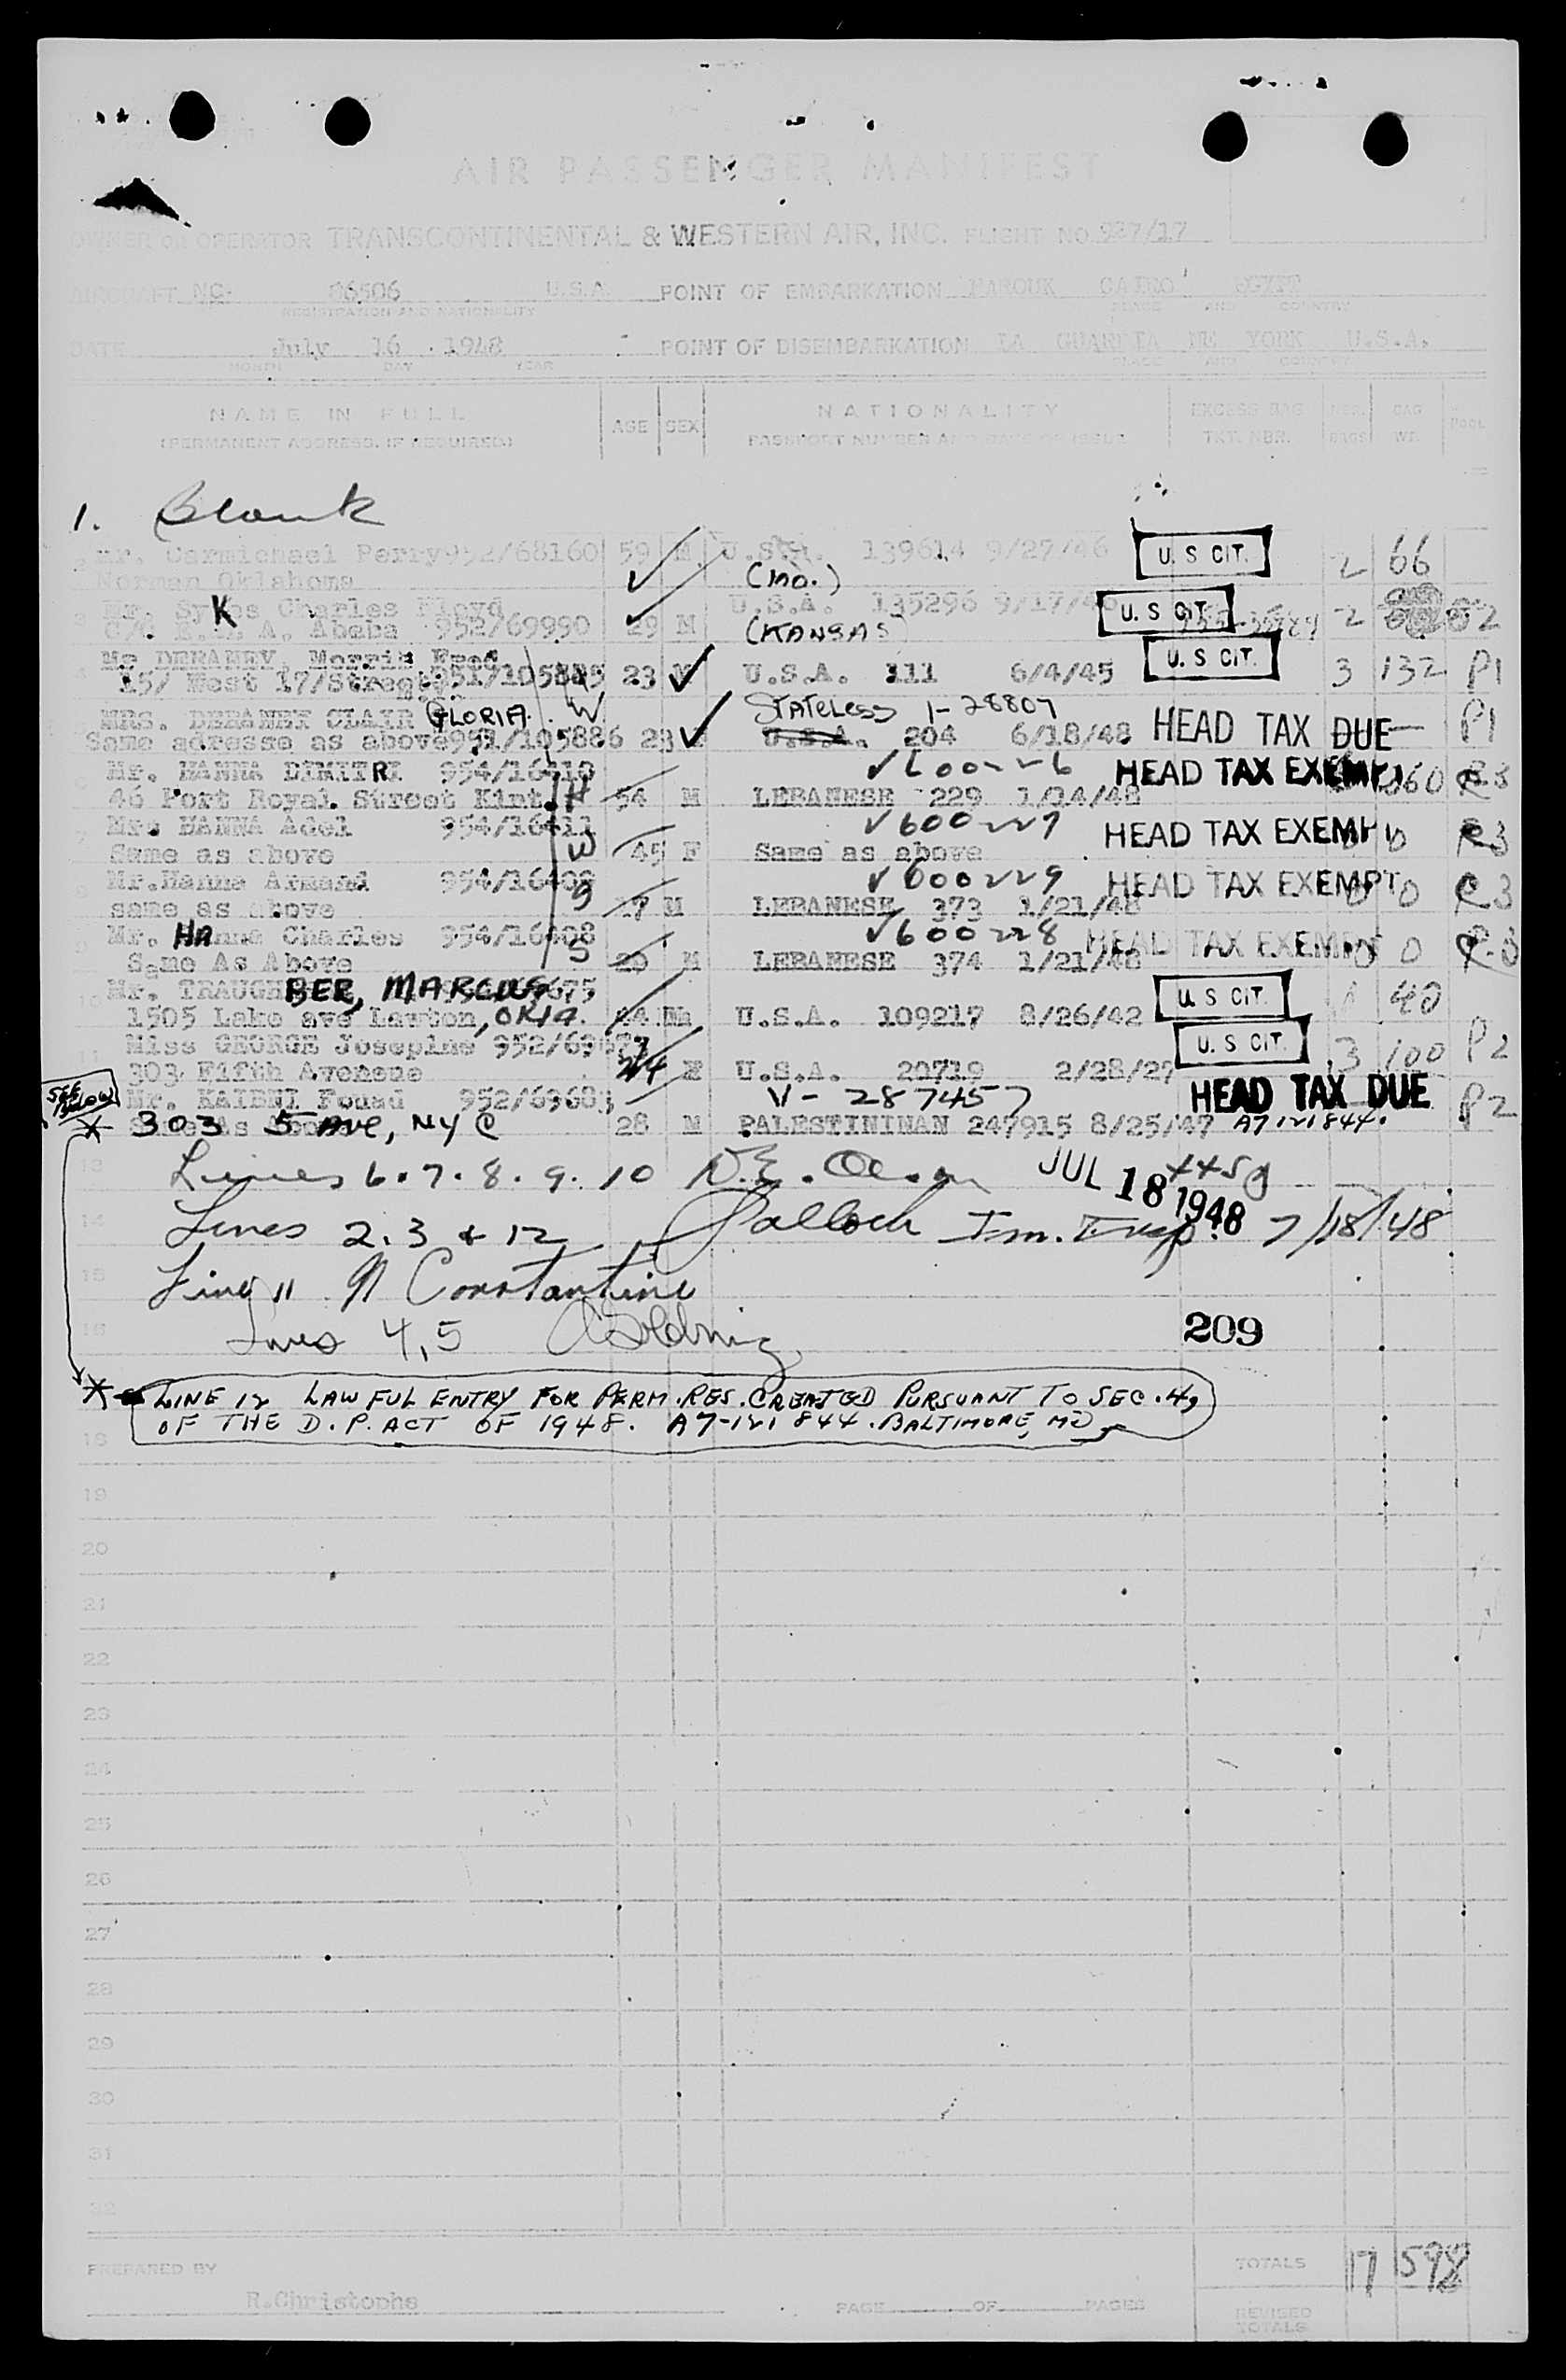 AIR PASSENGER MANIFEST
OWNER OR OPERATOR TRANSCONTINENTAL & WESTERN AIR, INC. FLIGHT NO. 927/17
AIRCRAFT NC- 06506 U.S.A. POINT OF EMBARKATION FAROUK CAIRO EGYPT
REGISTRATION AND NATIONALITY PLACE AND COUNTRY
DATE July 16 1948 POINT OF DISEMBARKATION LA GUARDIA NEW YORK U.S.A.
MONTH DAY YEAR PLACE AND COUNTRY
NAME IN FULL AGE SEX NATIONALITY EXCESS BAG NBR. BAG POOL
(PERMANENT ADDRESS, IF REQUIRED) PASSPORT NUMBER AND DATE OF ISSUE TKT. NBR. BAGS WT.
1. Blank
2 Mr. Carmichael Perry 952/68160 59 M U.S.A. 139614 9/27/46 U. S CIT. 2 66
Norman Oklahoma (Mo.)
3 Mr. Sykes Charles Floyd U.S.A. 135296 9/17/46 U. S CIT. 2
A. Ababa 952/69990 29 M (KANSAS)
Mr DERAMEY, Morris Fred U. S CIT.
157 West 17/Street 951/105885 23 M U.S.A. 111 6/4/45 3 132 P1
MRS. DERAMEY CLAIR GLORIA W STATELESS 1-28807 HEAD TAX DUE P1
Same adresse as above 951/105886 23 U.S.A. 204 6/18/48
Mr. HANNA DIMITRI 954/16410 H ✓600226 HEAD TAX EXEMPT 060
46 Port Royal Street Kint. 54 M LEBANESE 229 1/14/48
Mrs HANNA Adel 954/16411 W ✓600227 HEAD TAX EXEMPT 0
Same as above 45 F Same as above
Mr.Hanna Armand 954/16409 S ✓600229 HEAD TAX EXEMPT 0
same as above 17 M LEBANESE 373 1/21/48
Mr. HAnna Charles 954/16408 S ✓600228 HEAD TAX EXEMPT 0
Same As Above 20 M LEBANESE 374 1/21/48
10 Mr. TRAUGHBER, MARCUS U. S CIT. 40
1505 Lake ave Lawton, OKla. 44 U.S.A. 109217 8/26/42
11 Miss GEORGE Josepine 952/69677 U. S CIT. 3 100 P2
303 Fifth Avenue 24 F U.S.A. 20719 2/28/27
SEE BELOW Mr. KAIBNI Fouad 952/69683 V- 287457 HEAD TAX DUE P2
* 303 5 AVE, NYC 28 M PALESTININAN 247915 8/25/47 A7121844.
13 Lines 6.7.8.9.10 JUL 18 1948
14 Lines 2.3 & 12 Im. Insp. 7/18/48
15 Line 11 N Constantine
16 Lines 4,5 209
* LINE 12 LAWFUL ENTRY FOR PERM. RES. CREATED PURSUANT TO SEC. 4,
18 OF THE D.P. ACT OF 1948. A7-121 844. BALTIMORE, MD
19
20
21
22
23
24
25
26
27
28
29
30
31
32
PREPARED BY R.Christophe TOTALS 17 598
PAGE OF PAGES REVISED
TOTALS